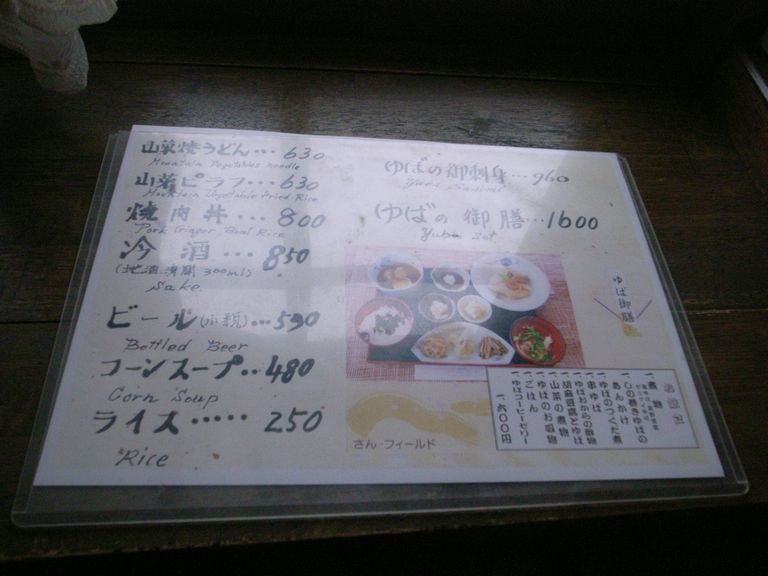 山菜焼うどん…630
Mountain Vegetables noodle
山菜ピラフ…630
Mountain Vegetable Fried Rice
焼肉丼…800
Pork Ginger Boal Rice
冷酒…850
(地酒 清開 300ml)
Sake
ビール(小瓶)…590
Bottled Beer
コーンスープ…480
Corn Soup
ライス…..250
Rice
ゆばの御刺身…960
Yuba Sasimi
ゆばの御膳…1600
Yuba Set
ゆば御膳
一、煮物
一、しの巻きゆばの
あんかけ
一、ゆばのつくだ煮
一、串ゆば
一、ゆばおからの酢物
一、胡麻豆腐とゆば
一、山菜の煮物
一、ゆばのお吸物
一、ごはん
一、ゆばコーヒーゼリー
一、六〇〇円
さん・フィールド